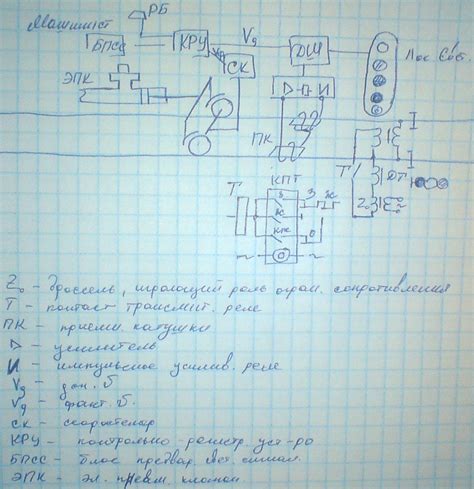 Машинист
РБ
БПСС
КРУ
Vд
ДШ
Лок. Свет.
ЭПК
Vф
СК
И
ПК
I
Т
ДТ
I
Z₀
КПТ
Т
З
З
Ж
Ж
КЖ
О
~
~
Z₀ - Дроссель, играющий роль огран. сопротивления
Т - контакт трансмит. реле
ПК - приемн. катушки
▷ - усилитель
И - импульсное усилив. реле
Vд - доп. v
Vф - факт. v
СК - скоростемер
КРУ - контрольно-регистр. уст-во
БПСС - блок предвар. свет. сигнал.
ЭПК - эл. пневм. клапан